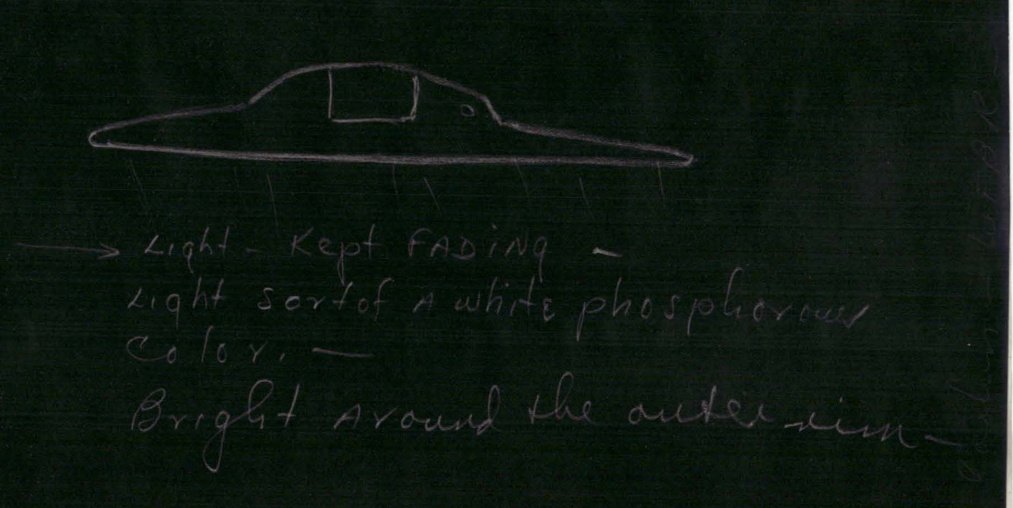 Light - Kept FADiNg -
Light sort of A white phosphorous
color. -
Bright Around the outer rim -